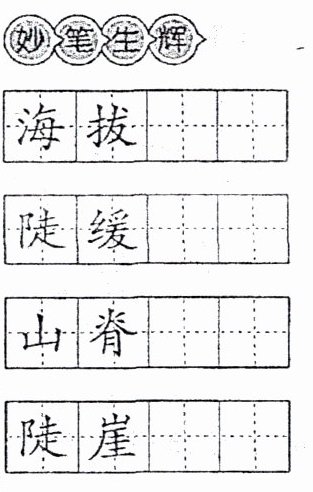 妙笔生辉
海拔
陡缓
山脊
陡崖